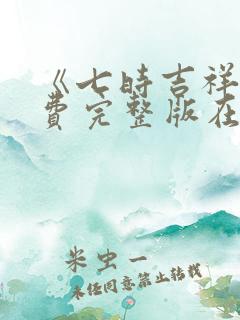 《七时吉祥
费完整版在
米虫一
未经同意禁止转载